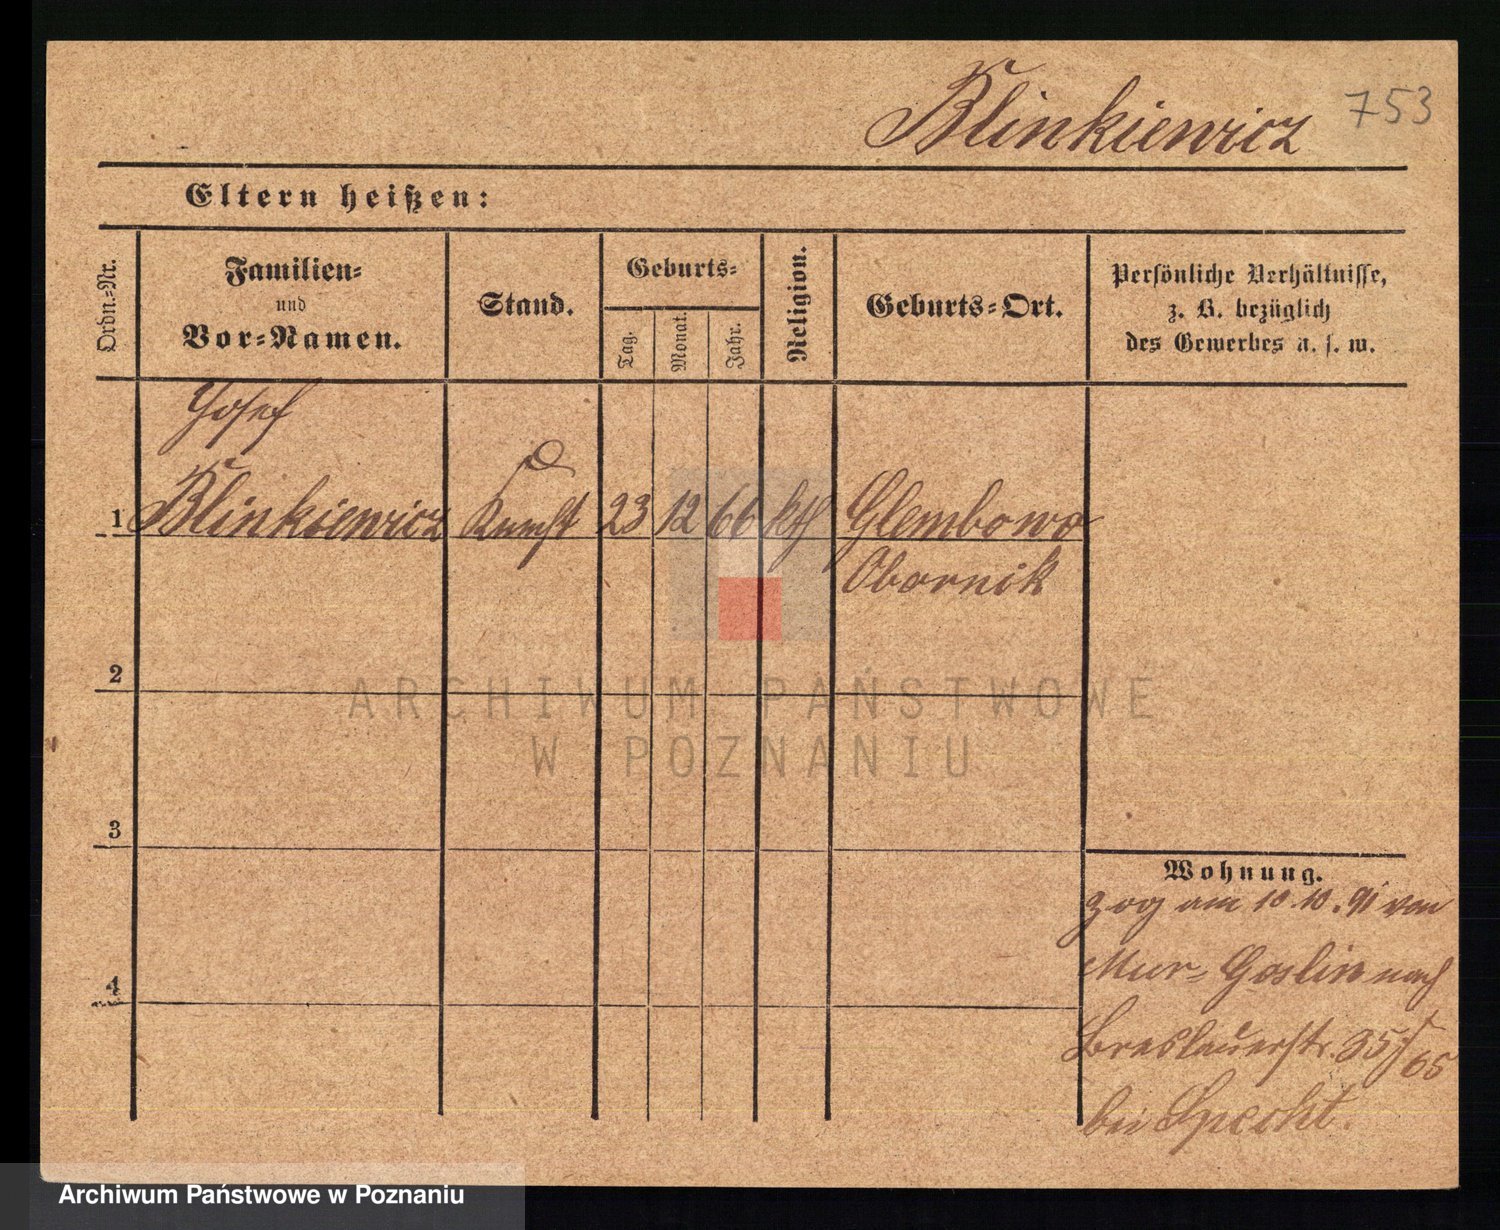 Blinkiewicz 753
Eltern heißen:
Ordn.-Nr.
Familien-
und
Vor-Namen.
Stand.
Geburts-
Tag.
Monat.
Jahr.
Religion.
Geburts-Ort.
Persönliche Verhältnisse,
z. B. bezüglich
des Gewerbes u. s. w.
Josef
1 Blinkiewicz 23 12 66 kth Glembowo
Obornik
2
3
4
Wohnung.
zog am 10 10. 91 von
Mur= Goslin nach
Breslauerstr. 35/
65
bei Specht.
ARCHIWUM PAŃSTWOWE
W POZNANIU
Archiwum Państwowe w Poznaniu